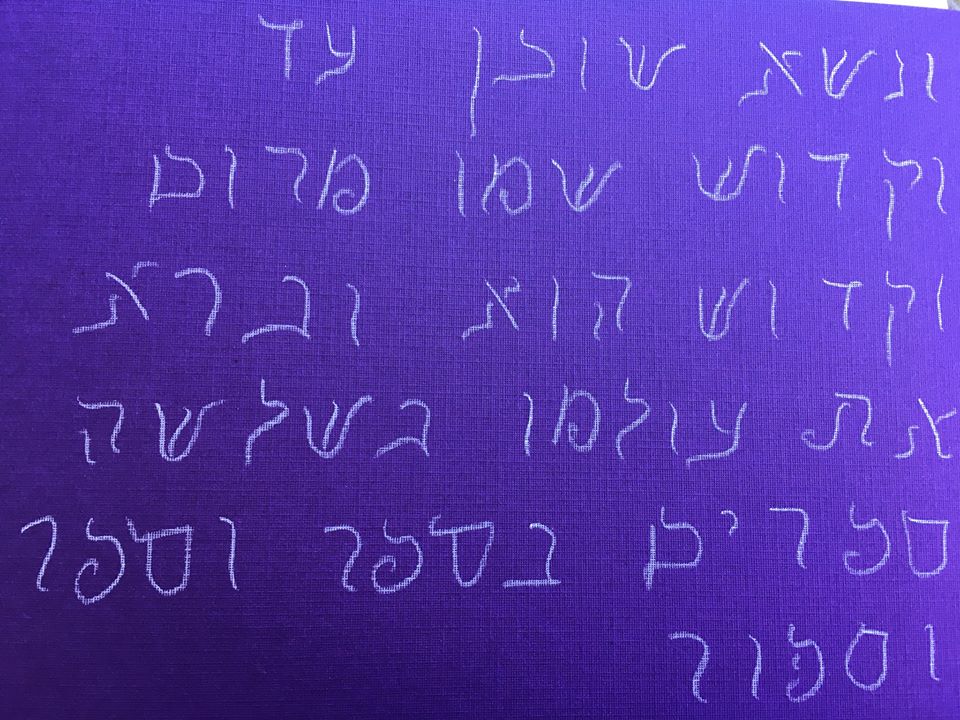 ונשא שוכן עד
וקדוש שמו מרום
וקדוש הוא וברא
את עולמו בשלשה
ספרים בספר וספר
וספור